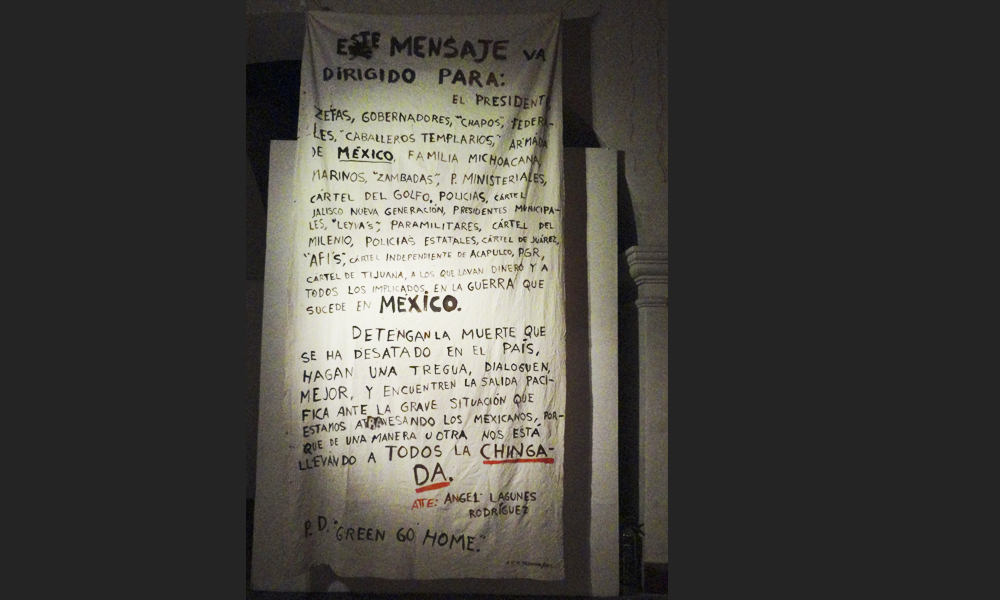 ESTE MENSAJE VA
DIRIGIDO PARA:
EL PRESIDENTE
ZETAS, GOBERNADORES, "CHAPOS", FEDERA-
LES, "CABALLEROS TEMPLARIOS," ARMADA
DE MÉXICO, FAMILIA MICHOACANA,
MARINOS, "ZAMBADAS", P. MINISTERIALES,
CÁRTEL DEL GOLFO, POLICIAS, CÁRTEL
JALISCO NUEVA GENERACIÓN, PRESIDENTES MUNICIPA-
LES, "LEYVA'S", PARAMILITARES, CÁRTEL DEL
MILENIO, POLICIAS ESTATALES, CÁRTEL DE JUÁREZ,
"AFI'S", CÁRTEL INDEPENDIENTE DE ACAPULCO, PGR,
CÁRTEL DE TIJUANA, A LOS QUE LAVAN DINERO Y A
TODOS LOS IMPLICADOS EN LA GUERRA QUE
SUCEDE EN MÉXICO.
DETENGAN LA MUERTE QUE
SE HA DESATADO EN EL PAÍS,
HAGAN UNA TREGUA, DIALOGUEN,
MEJOR, Y ENCUENTREN LA SALIDA PACÍ-
FICA ANTE LA GRAVE SITUACIÓN QUE
ESTAMOS ATRAVESANDO LOS MEXICANOS, POR-
QUE DE UNA MANERA U OTRA NOS ESTÁ
LLEVANDO A TODOS LA CHINGA-
DA.
ATTE: ANGEL LAGUNES
RODRÍGUEZ
P.D. "GREEN GO HOME."